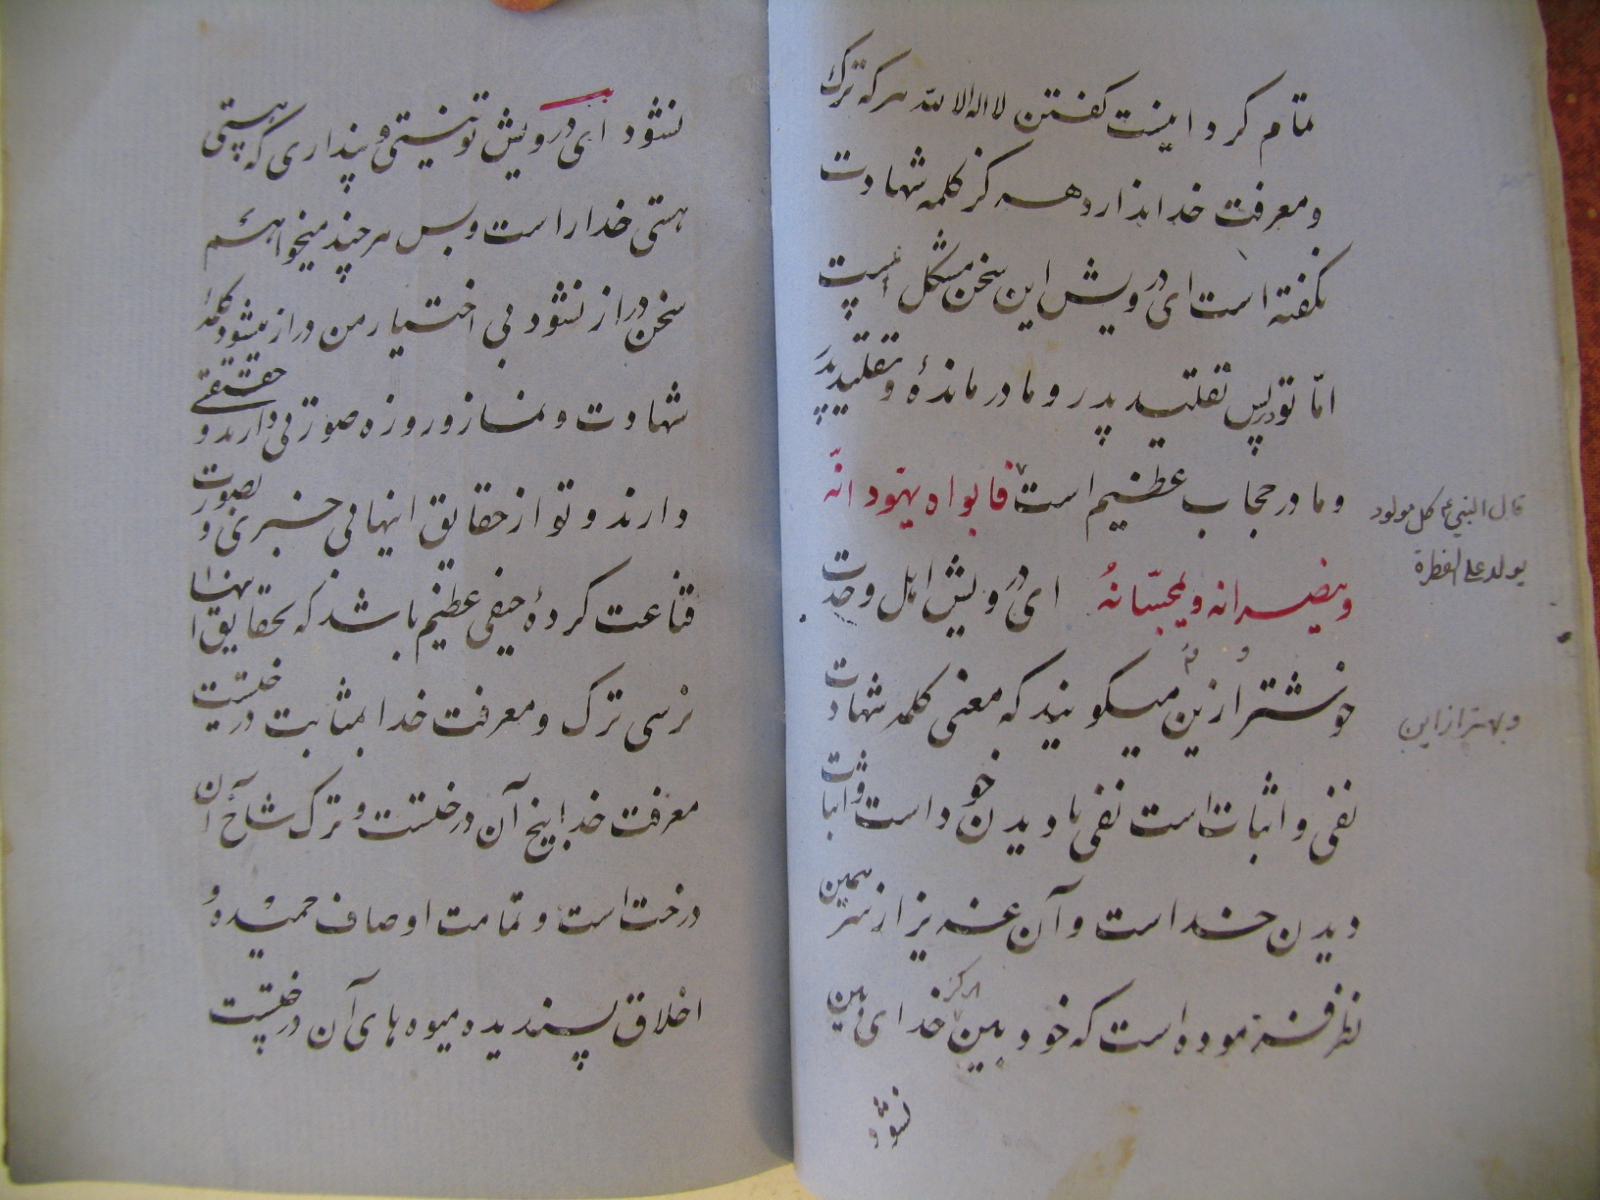 تمام کرد اینست کفتن لا اله الا لله هرکه ترک
و معرفت خدا ندارد هرکز کلمه شهادت
نکفته است ای درویش این سخن مشکل است
امّا تو در پس تقلید پدر و مادر ماندهٔ و تقلید پدر
و مادر حجاب عظیم است فابواه یهودانّه
قال النبی کل مولود
یولد علی الفطرة
و ینصرانه و یمجسّانهُ ای درویش اهل وحدت
خوشتر ازین میکویند که معنی کلمه شهادت
و بهتر از این
نفی و اثبات است نفی نادیدن خود است و اثبات
دیدن خداست و آن عزیز از سر همین
نظر فرموده است که خودبین هرکز خدای بین
نشود
نشود ای درویش تو نیستی و پنداری که هستی
هستی خدا راست و بس هر چند میخواهم
سخن دراز نشود بی اختیار من دراز میشود کلمهٔ
شهادت و نماز و روزه صورتی دارند و حقیقتی
دارند و تو از حقایق اینها بی خبری و بصورت
قناعت کردهٔ حیفی عظیم باشد که بحقایق اینها
نرسی ترک و معرفت خدا بمثابت درختیست
معرفت خدا بیخ آن درختست و ترک شاخ آن
درخت است و تمامت اوصاف حمیده و
اخلاق پسندیده میوه های آن درختیست